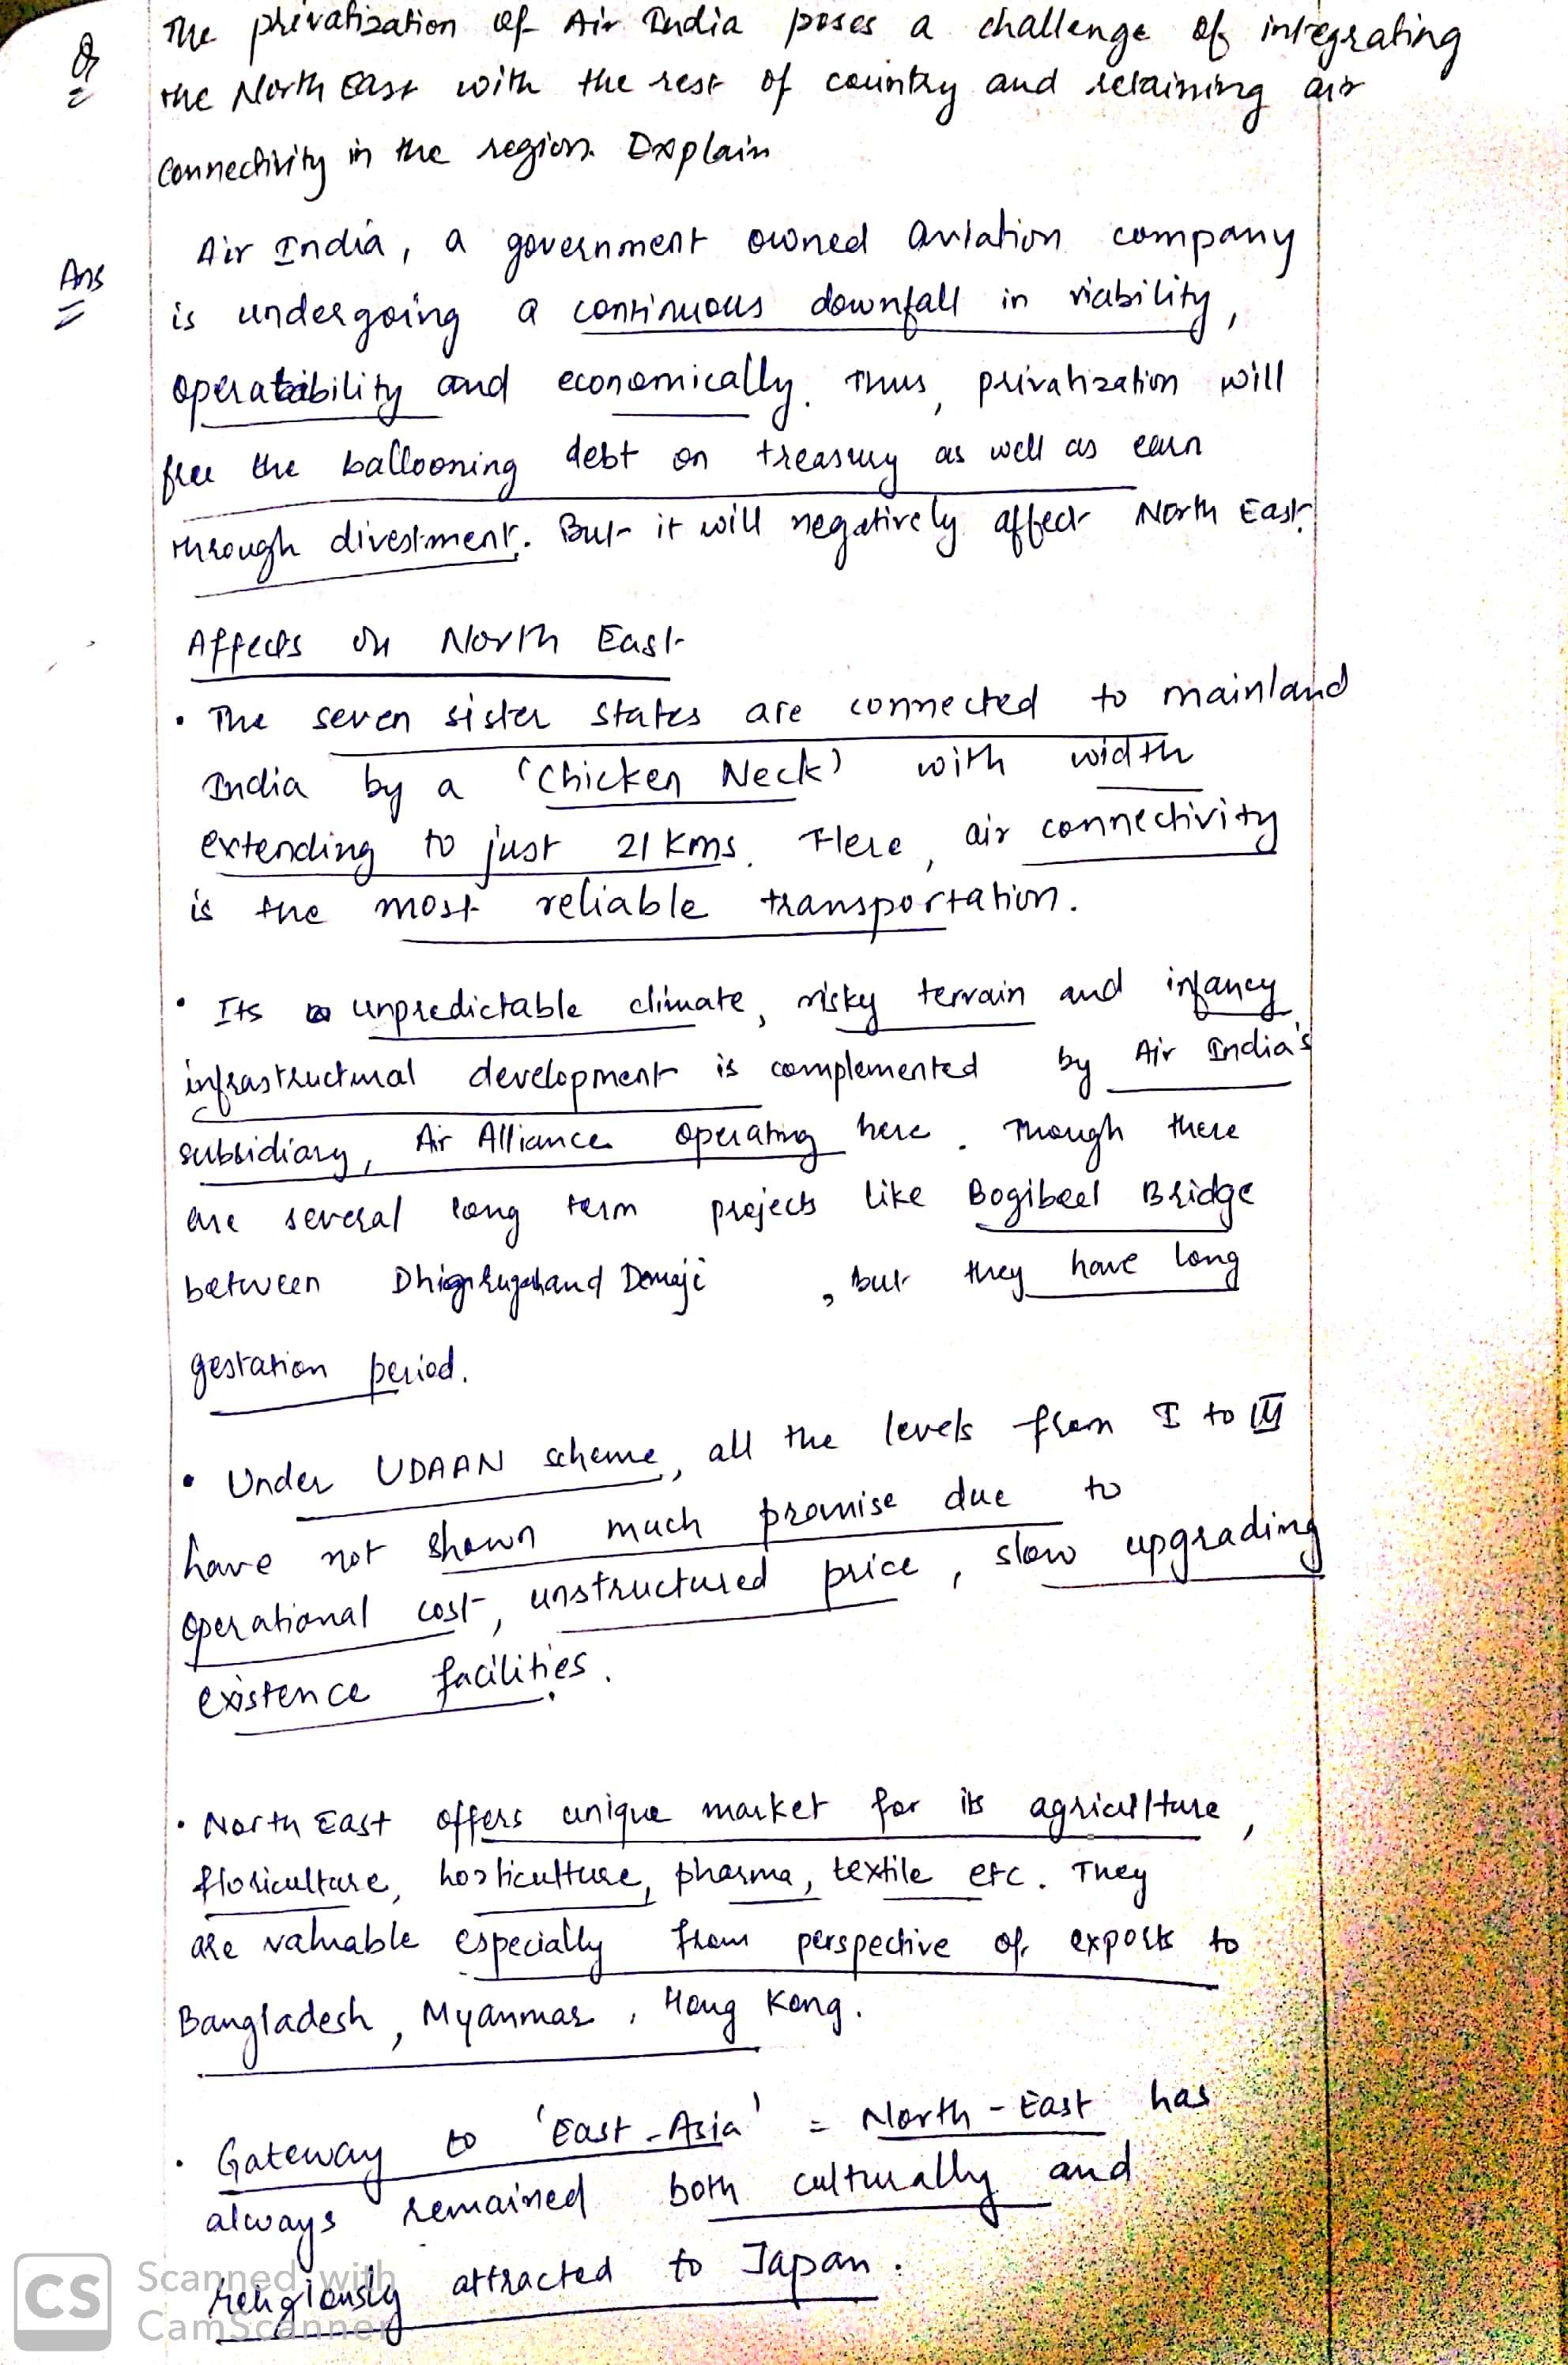 Q The privatization of Air India poses a challenge of integrating
the North East with the rest of country and retaining air
connectivity in the region. Explain
Ans Air India, a government owned aviation company
is undergoing a continuous downfall in viability,
operatability and economically. Thus, privatization will
free the ballooning debt on treasury as well as earn
through divestment. But it will negatively affect North East.
Affects on North East
• The seven sister states are connected to mainland
India by a 'Chicken Neck' with width
extending to just 21 Kms. Here, air connectivity
is the most reliable transportation.
• Its unpredictable climate, risky terrain and infancy
infrastructural development is complemented by Air India's
subsidiary, Air Alliance operating here. Though there
are several long term projects like Bogibeel Bridge
between and , but they have long
gestation period.
• Under UDAAN scheme, all the levels from I to
have not shown much promise due to
operational cost, unstructured price, slow upgrading
existence facilities.
• North East offers unique market for its agriculture,
floriculture, horticulture, pharma, textile etc. They
are valuable especially from perspective of exports to
Bangladesh, Myanmar, Hong Kong.
• Gateway to 'East-Asia' = North-East has
always remained both culturally and
religiously attracted to Japan.
CS Scanned with
CamScanner